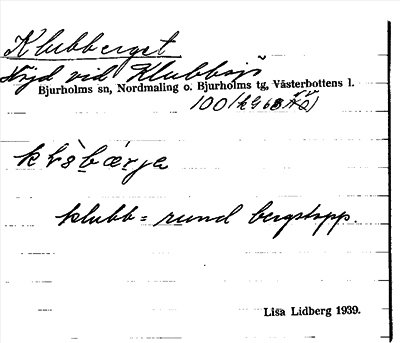 Klubberget
Höjd vid Klubbsjö
Bjurholms sn, Nordmaling o. Bjurholms tg, Västerbottens l.
klubb = rund bergstopp.
Lisa Lidberg 1939.